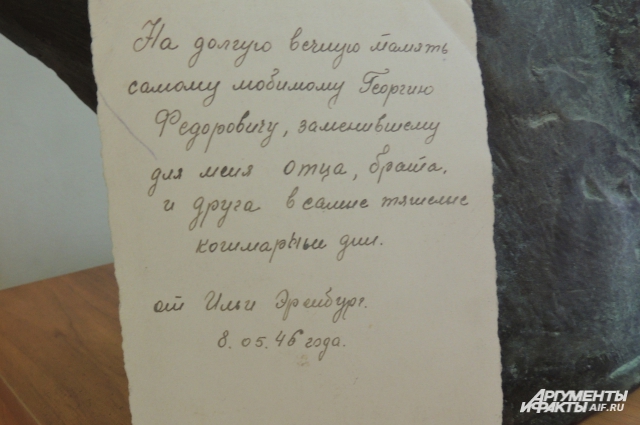 На долгую вечную память
самому любимому Георгию
Федоровичу, заменившему
для меня отца, брата,
и друга в самые тяжелые
кошмарные дни.
от Ильи Эренбург.
8.05.46 года.
АРГУМЕНТЫ
И ФАКТЫ AIF.RU